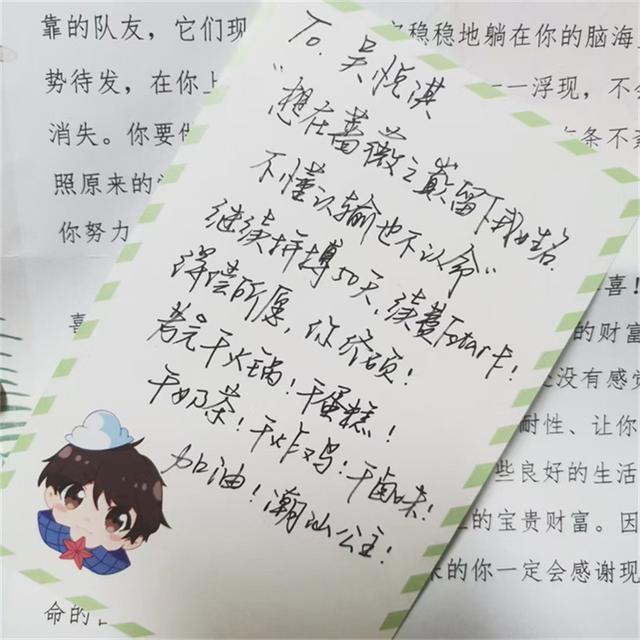 靠的队友，它们现
稳稳地躺在你的脑海
势待发，在你上
一一浮现，不
消失。你要
条不
照原来的
你努力
To. 吴悦淇
"想在蔷薇之巅留下我姓名.
不懂认输也不认命"
继续拼搏50天，续费Fstar卡！
得偿所愿，你
考完干火锅！干蛋糕！
干奶茶！干炸鸡！干卤味！
加油！潮汕公主！
喜！
喜
的财富
没有感觉
耐性、让你
些良好的生活
的宝贵财富。因
的你一定会感谢现
命的